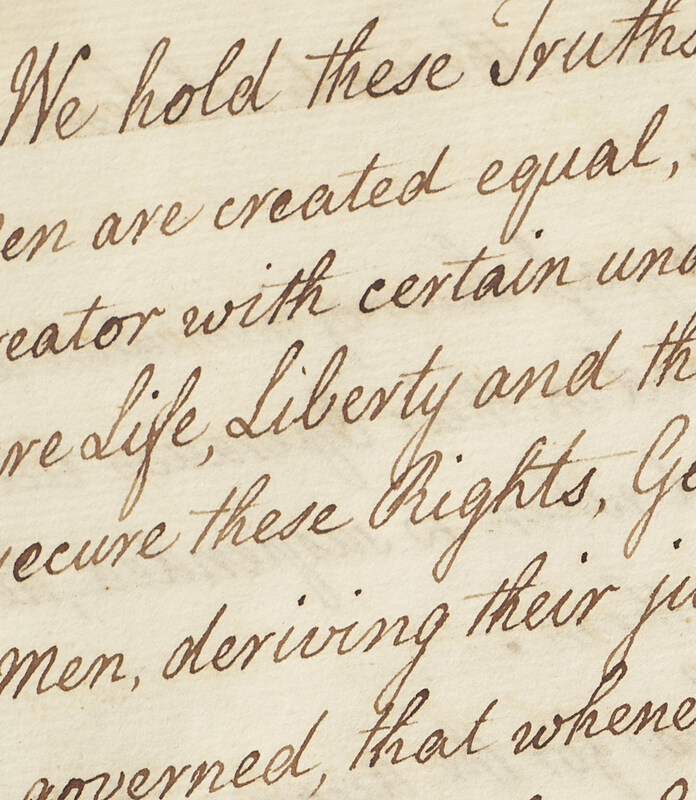 We hold these Truths
en are created equal,
reator with certain una
re Life, Liberty and th
secure these Rights, Go
Men, deriving their ju
governed, that whene